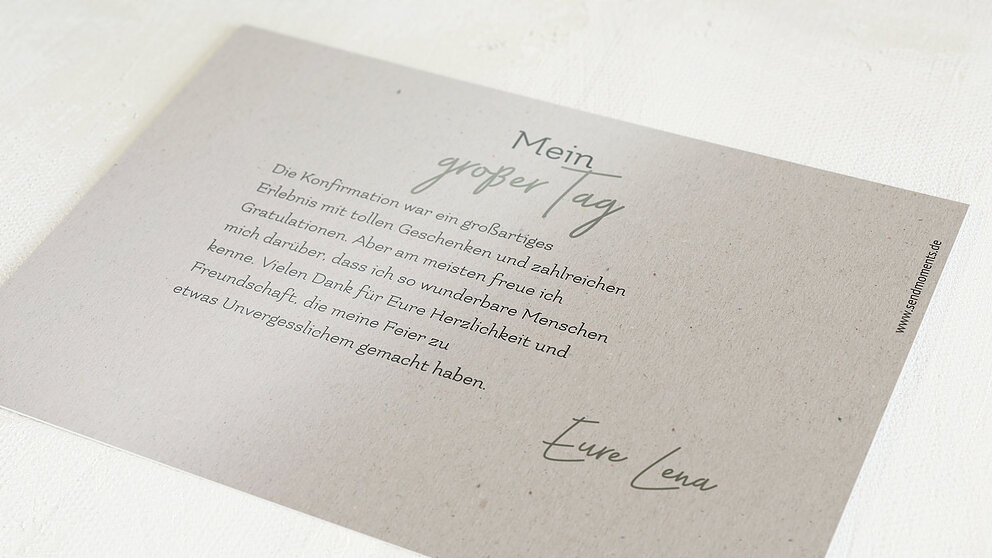 Mein
großer Tag
Die Konfirmation war ein großartiges
Erlebnis mit tollen Geschenken und zahlreichen
Gratulationen. Aber am meisten freue ich
mich darüber, dass ich so wunderbare Menschen
kenne. Vielen Dank für Eure Herzlichkeit und
Freundschaft, die meine Feier zu
etwas Unvergesslichem gemacht haben.
Eure Lena
www.sendmoments.de